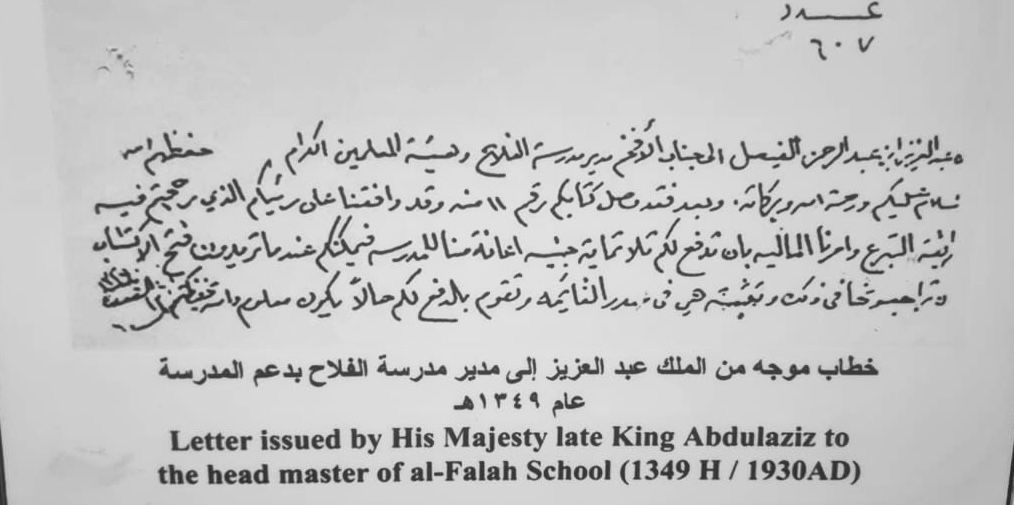 عدد
٦٠٧
عبد العزيز بن عبد الرحمن الفيصل الى جناب الأفخم مدير مدرسة الفلاح وهيئة المعلمين الكرام حفظهم الله
سلام عليكم ورحمة الله وبركاته. وبعد فقد وصل كتابكم رقم ١١ منه وقد وافقنا على رئيكم الذي رجحتم فيه
التبرع وامرنا الماليه بان تدفع لكم ثلاثماية جنيه اعانة منا للمدرسه فيمكنكم عندما تريدون فتح الاكتتاب
في ذلك هي في صدر القائمه وتقوم بالدفع لكم حالاً يكون معلوم
خطاب موجه من الملك عبد العزيز إلى مدير مدرسة الفلاح بدعم المدرسة
عام ١٣٤٩هـ
Letter issued by His Majesty late King Abdulaziz to
the head master of al-Falah School (1349 H / 1930AD)